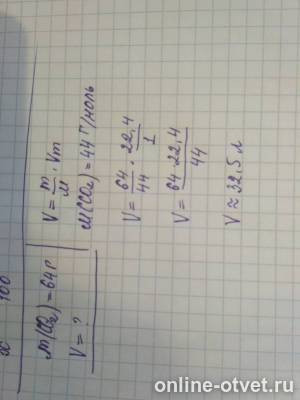 x 100
m(CO₂) = 64г
V = ?
V = m/M · Vm
M(CO₂) = 44 г/моль
V = 64/44 · 22,4/1
V = 64·22,4/44
V ≈ 32,5 л
online-otvet.ru